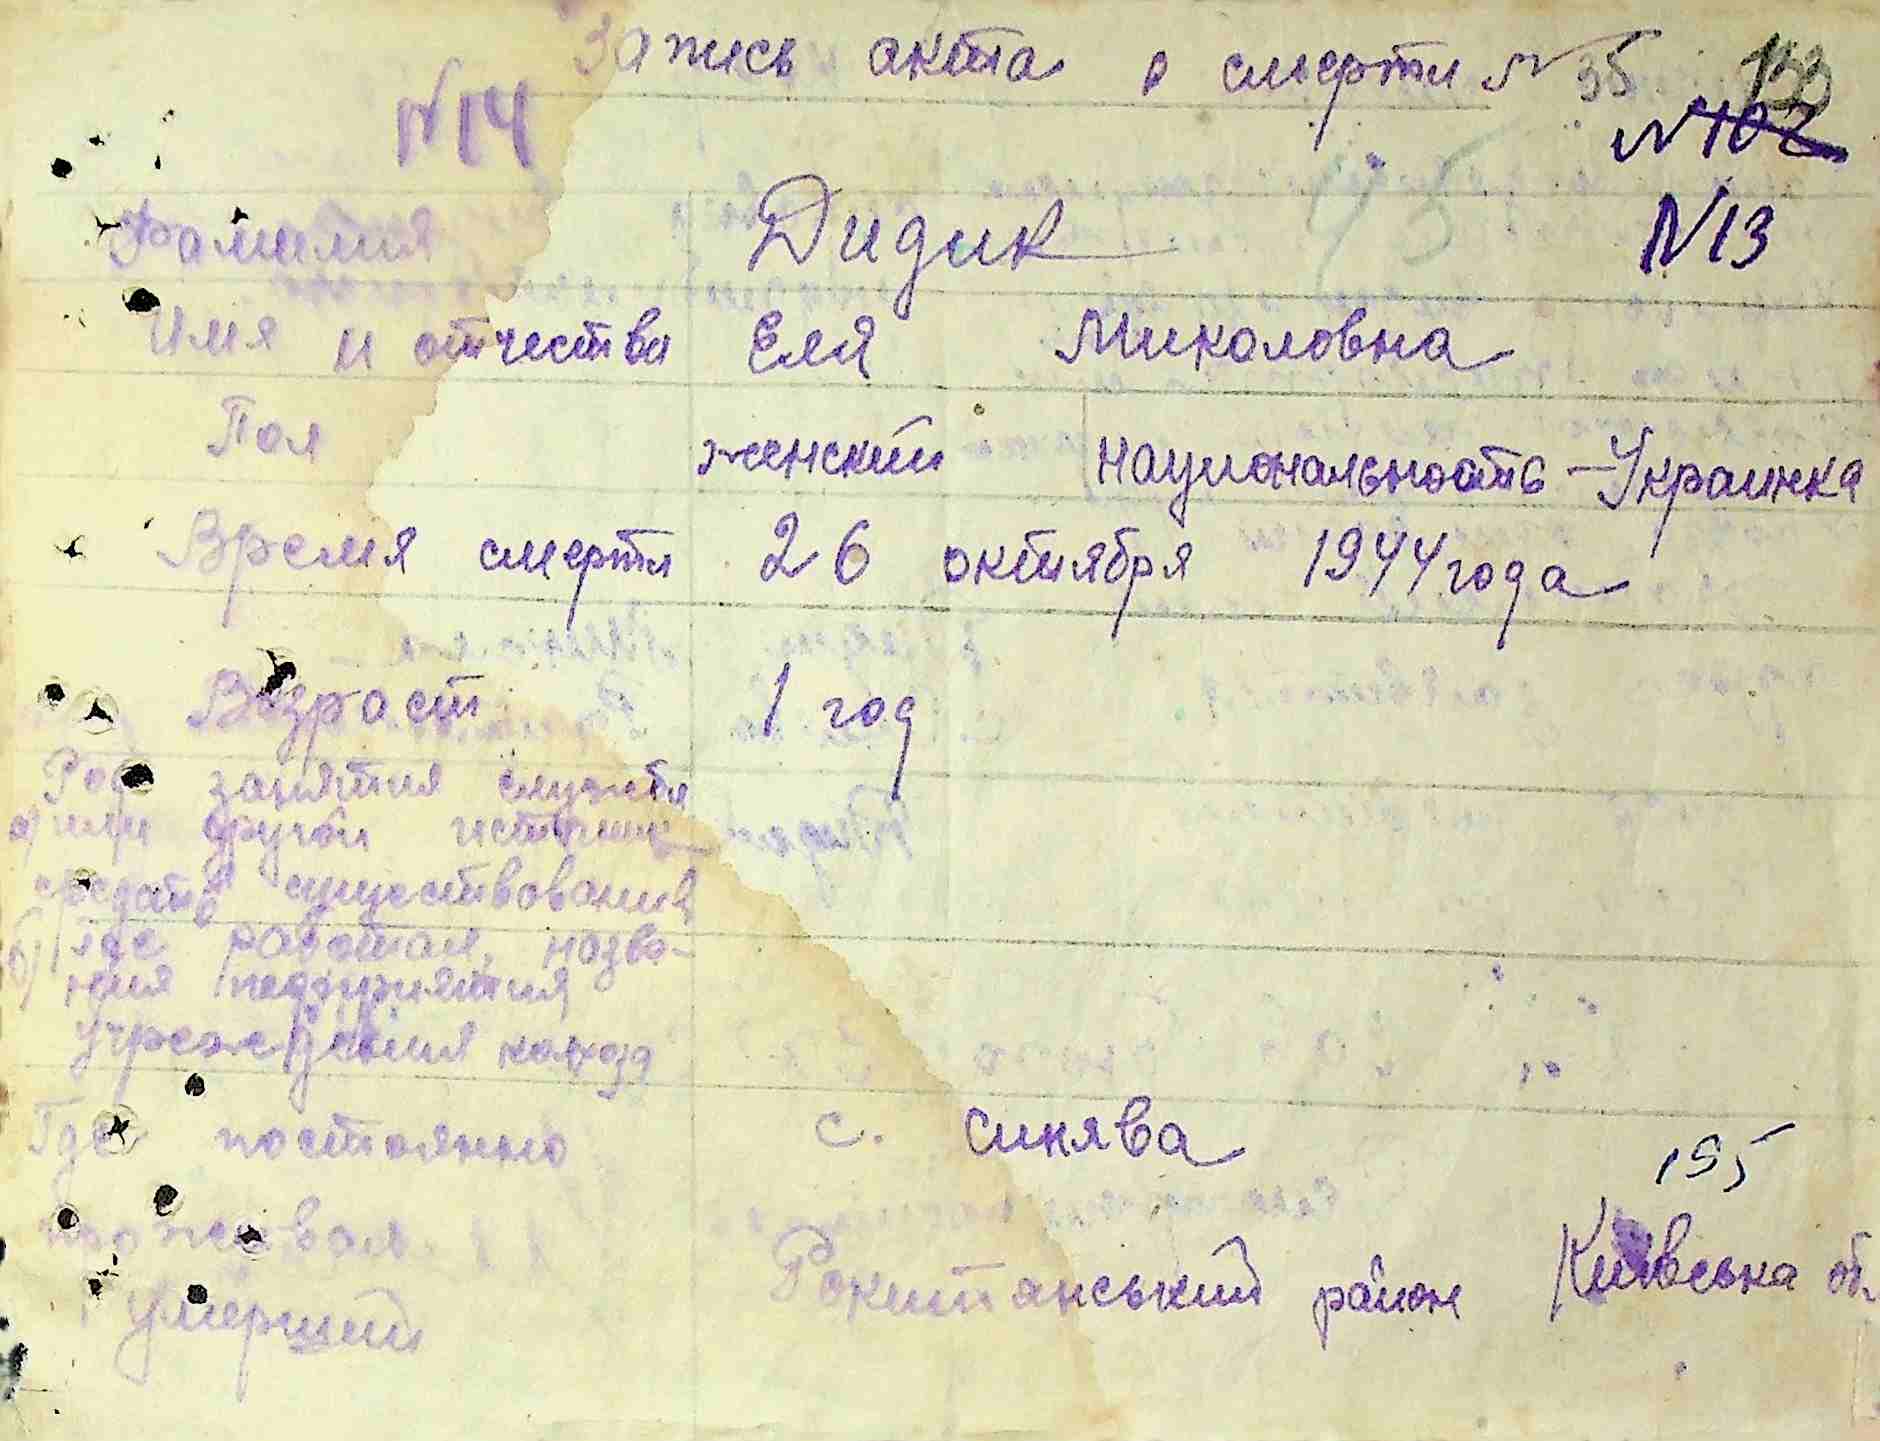 Запись акта о смерти N 35
133
N 14
N 102
Фамилия Дидик N 13
Имя и отчества Еля Миколовна
Пол женский Национальность - Украинка
Время смерти 26 октября 1944 года
Возраст 1 год
Род занятия служба
а) или другой источник
средств существования
б) где работал, назва-
ния педприятия
учреждения колхоза
Где постоянно с. Синява
195
проживал Рокитанський район Київська обл
Умерший